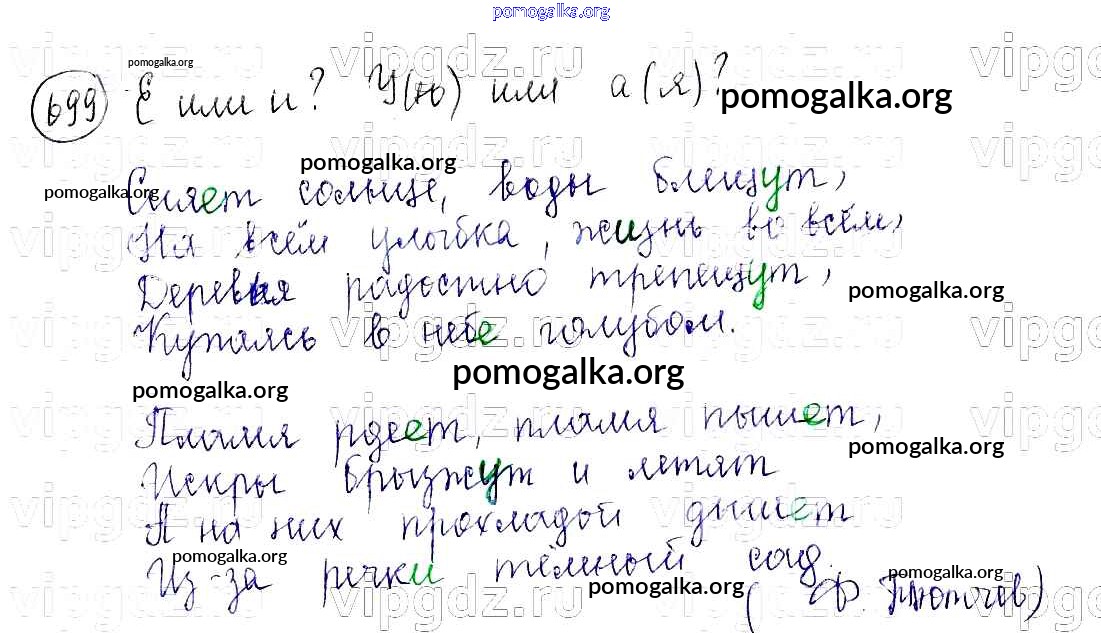 pomogalka.org
699 Е или и? У(ю) или а(я)?
Сияет солнце, воды блещут,
На всём улыбка, жизнь во всём,
Деревья радостно трепещут,
Купаясь в небе голубом.
Пламя рдеет, пламя пышет,
Искры брызжут и летят
А на них прохладой дышет
Из-за речки тёмный сад.
(Ф. Тютчев)
pomogalka.org
pomogalka.org
pomogalka.org
pomogalka.org
pomogalka.org
pomogalka.org
pomogalka.org
pomogalka.org
pomogalka.org
pomogalka.org
pomogalka.org
vipgdz.ru